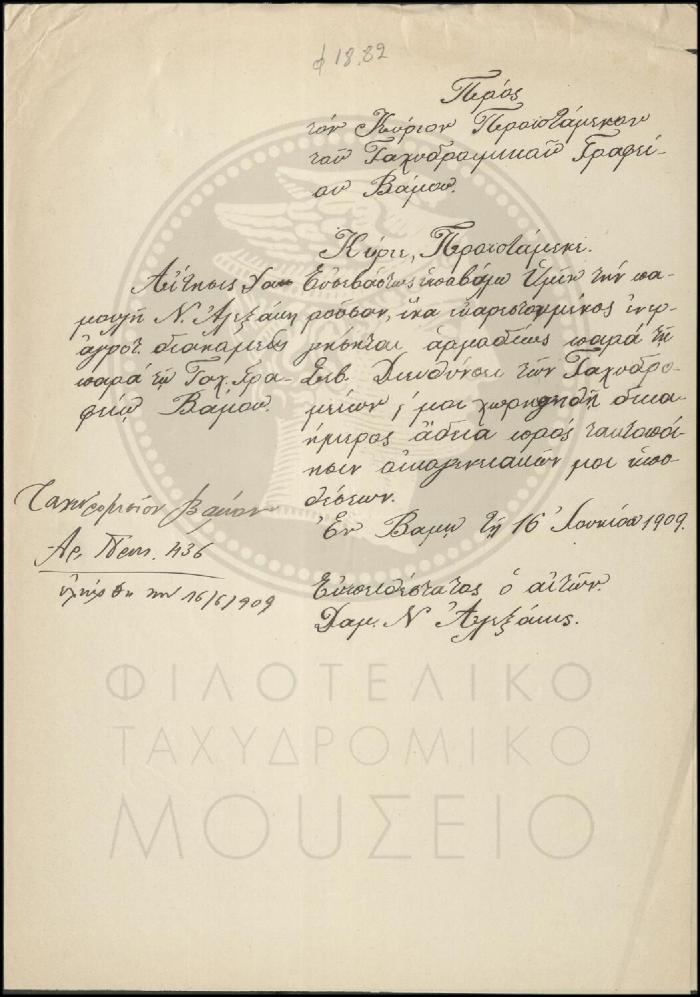 φ 18.82
Πρὸς
τὸν Κύριον Προϊστάμενον
τοῦ Ταχυδρομικοῦ Γραφεί-
ου Βάμου.
Κύριε, Προϊστάμενε.
Αἴτησις
μανλῆ Ν. Ἀλεξάκη
ἀγροτ. διανομέως
παρὰ τῷ Ταχ. Γρα-
φείῳ Βάμου.
Εὐσεβάστως ὑποβάλω Ὑμῖν τὴν πα-
ροῦσαν, ἵνα εὐαρεστουμένος ἐνερ-
γήσηται ἁρμοδίως παρὰ τῇ
Σεβ. Διευθύνσει τῶν Ταχυδρο-
μείων, μοι χωρηγηθῇ δεκα-
ήμερος ἄδεια πρὸς τακτοποί-
ησιν οἰκογενειακῶν μοι ὑπο-
θέσεων.
Ἐν Βάμῳ τῇ 16 Ἰουνίου 1909.
Εὐπειθέστατος ὁ αἰτῶν.
Δαμ. Ν Ἀλεξάκης.
Ταχυδρομεῖον Βάμου
Αρ. Πρωτ. 436
ἐλήφθη την 16/6/1909
ΦΙΛΟΤΕΛΙΚΟ
ΤΑΧΥΔΡΟΜΙΚΟ
ΜΟΥΣΕΙΟ